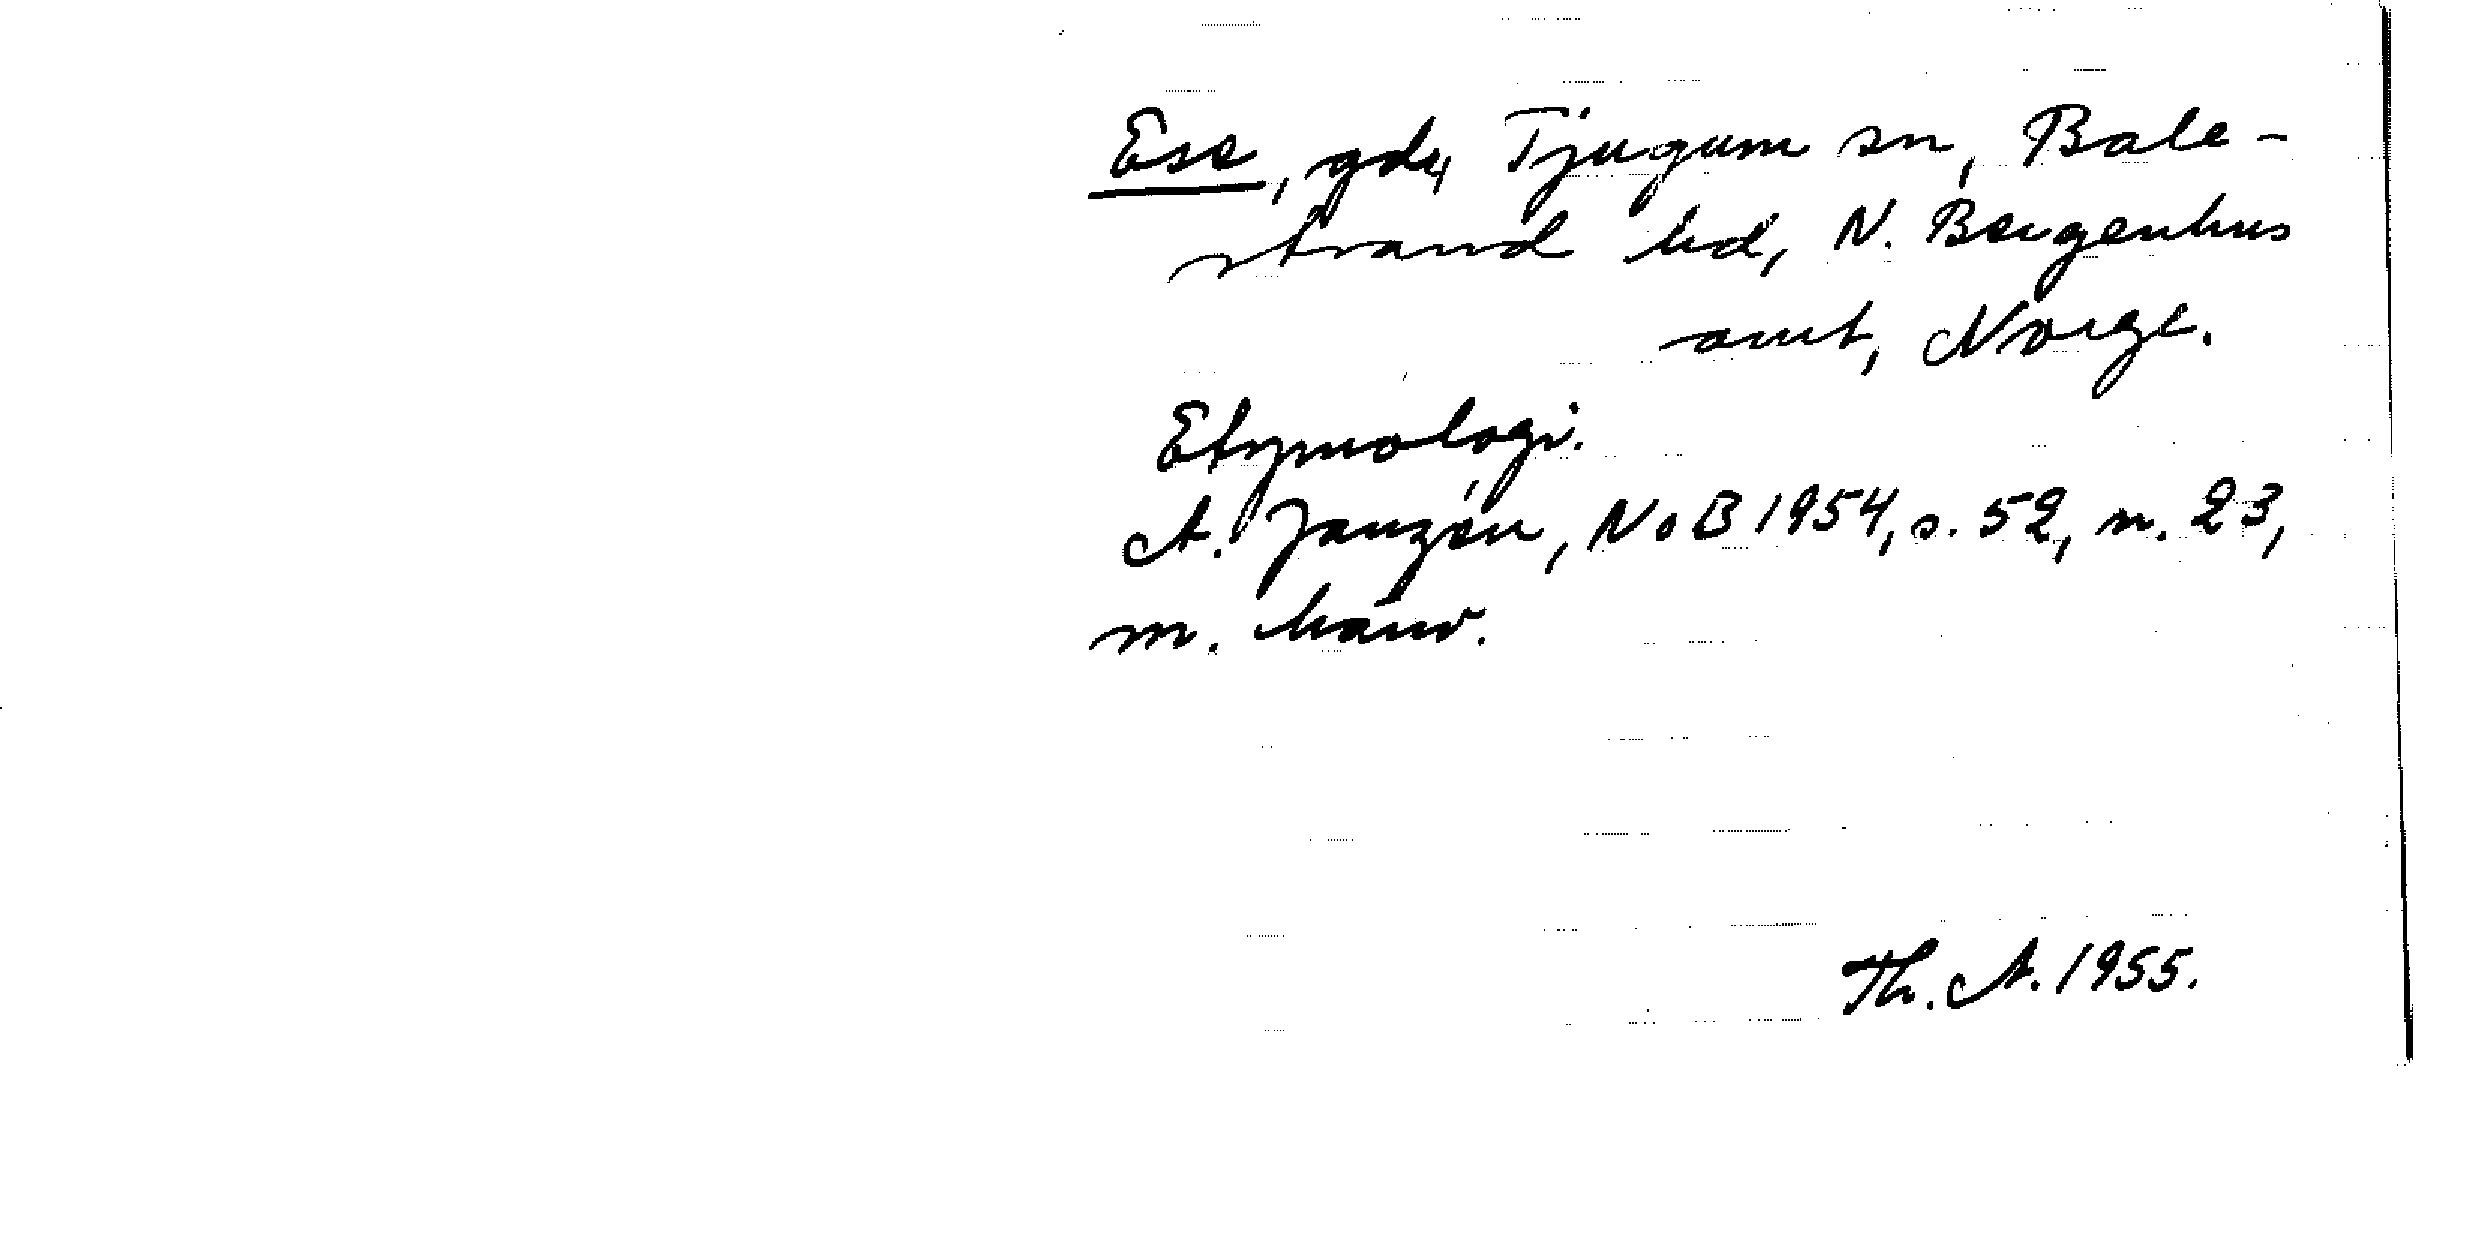 Ese, gd, Tjugum sn, Bale-
strand hd, N. Bergenhus
amt, Norge.
Etymologi.
A. Janzén, NoB 1954, s. 52, n. 23,
m. hänv.
Th. A. 1955.